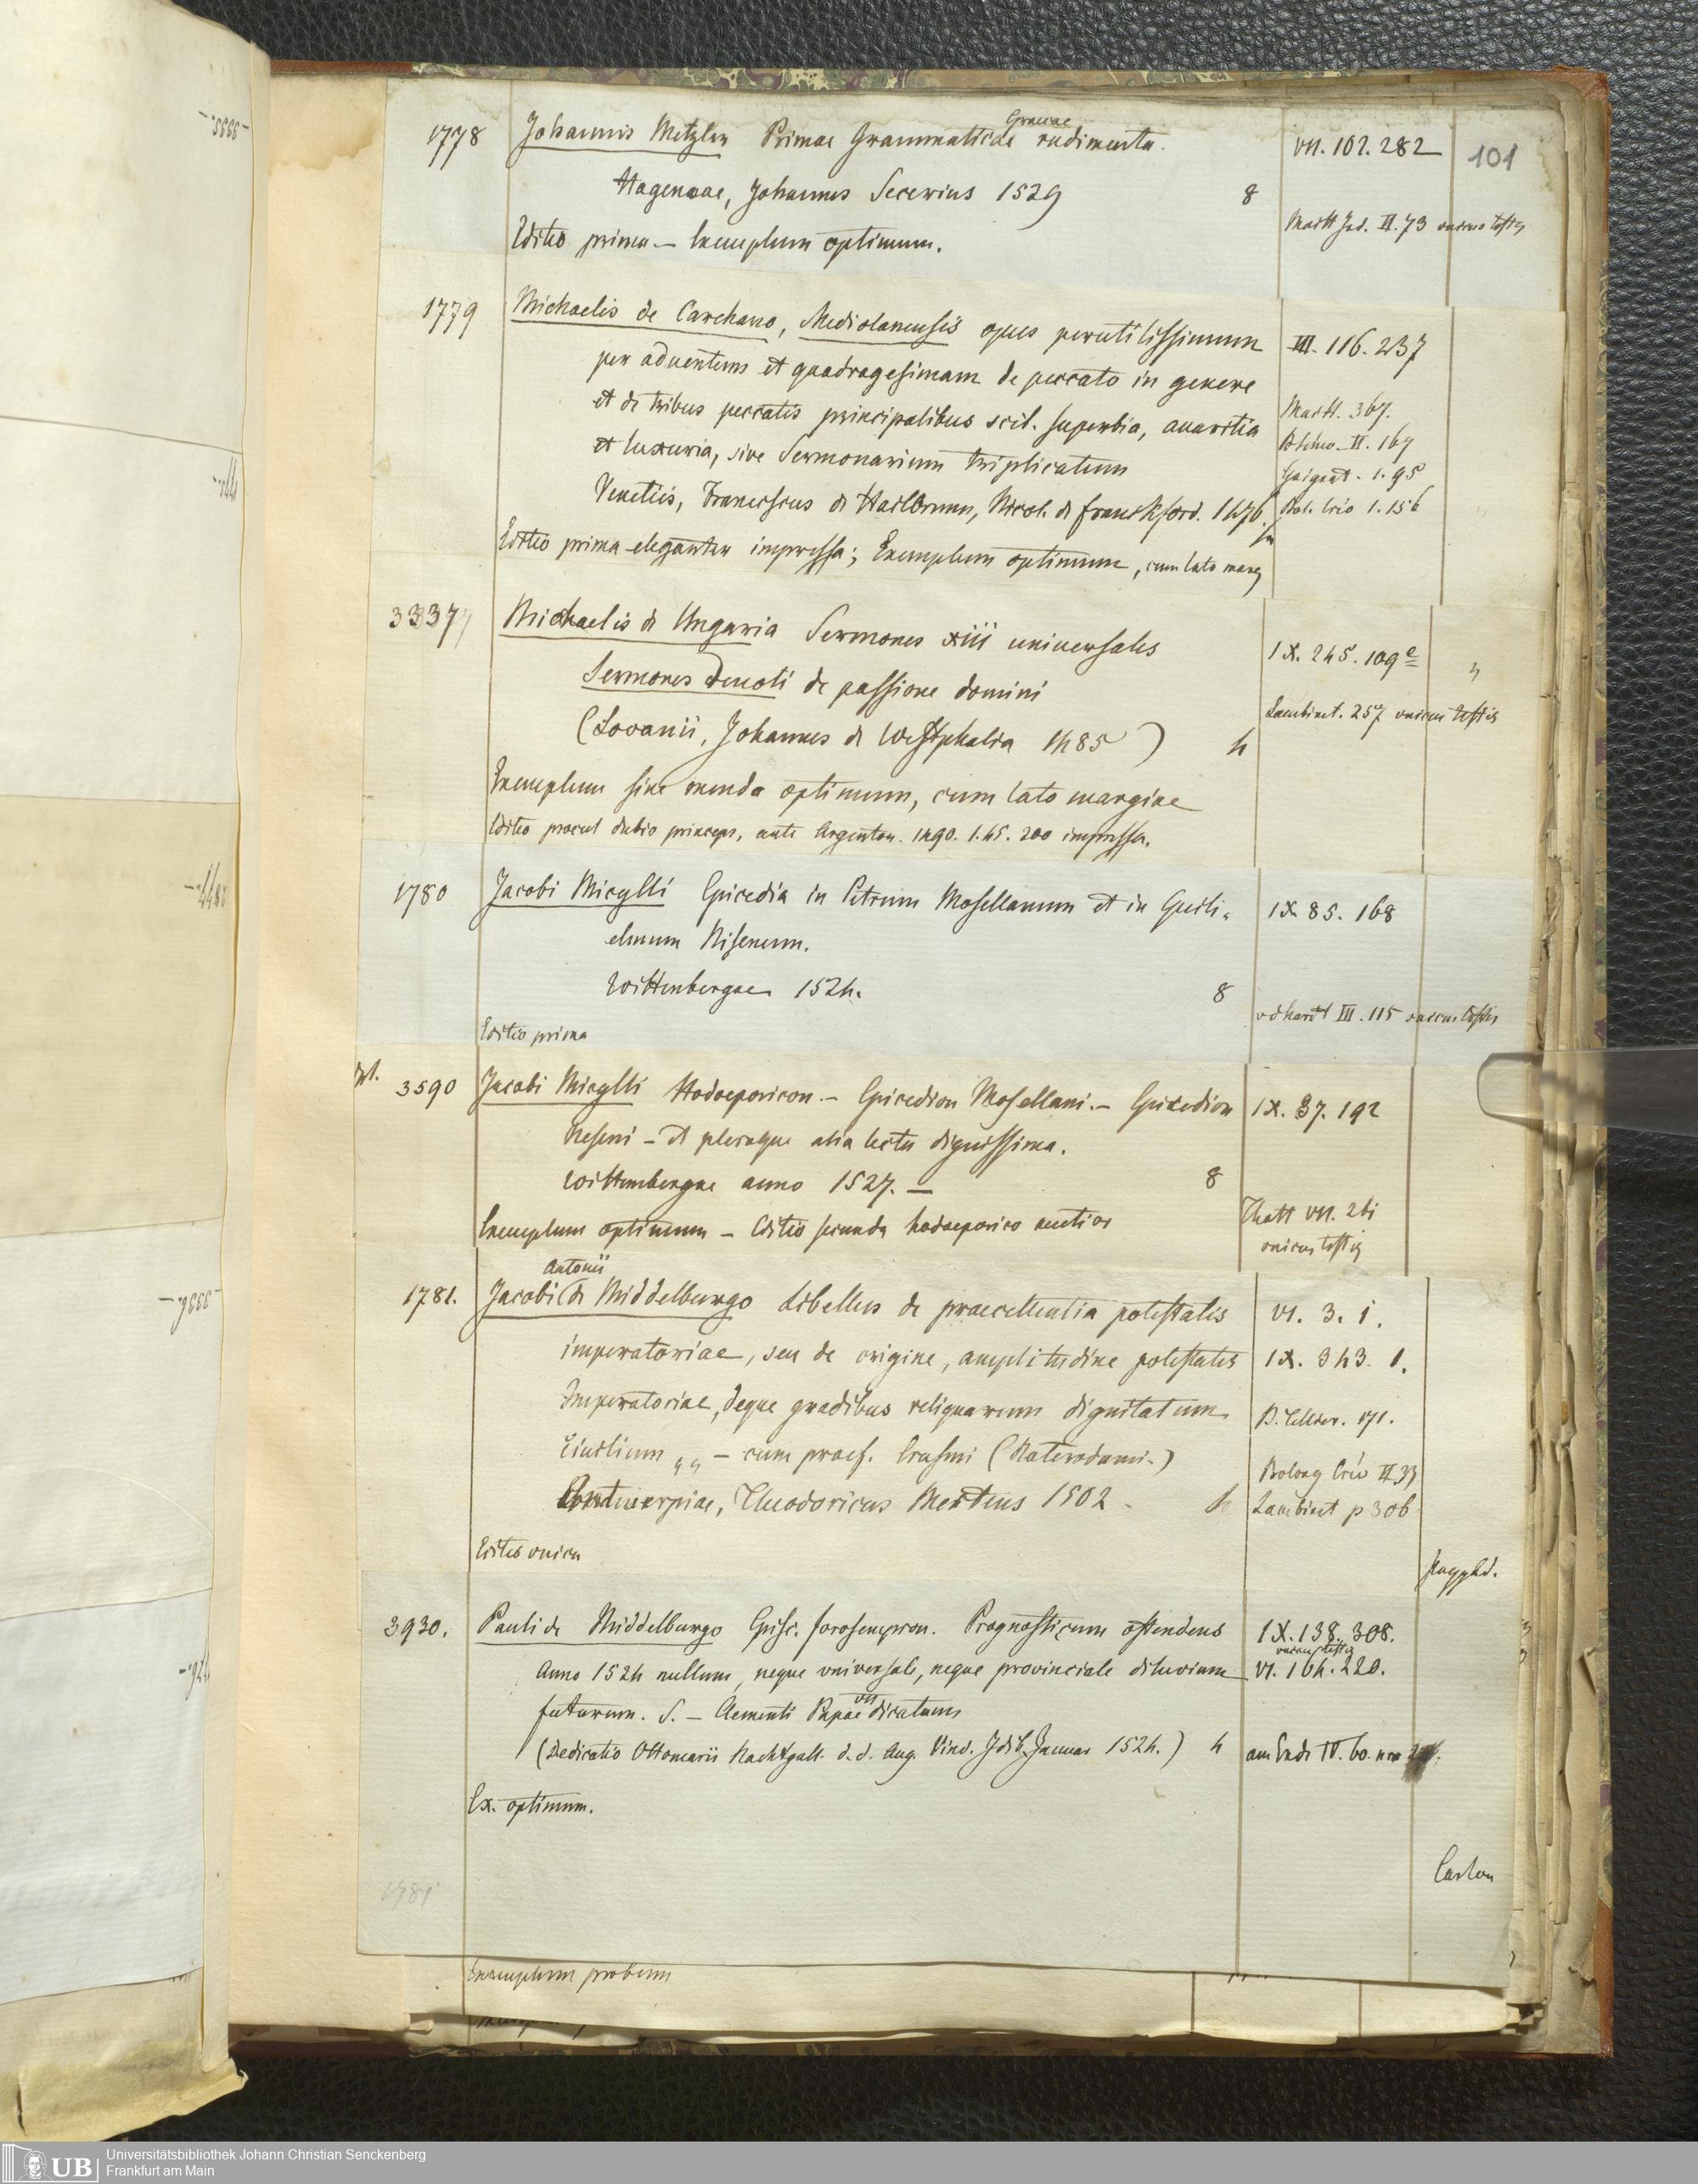 101
1778 Johannis Metzler Primae Grammaticae Graecae rudimenta. VII. 102. 282
Hagenoae, Johannes Secerius 1529 8
Editio prima – Exemplum optimum. Maitt Ind. II. 73 unicus testis
1779 Michaelis de Carchano, Mediolanensis opus perutilissimum III. 116. 237
per aduentum et quadragesimam de peccato in genere
et de tribus peccatis principalibus scil. superbia, auaritia Maitt. 367.
et luxuria, sive Sermonarium triplicatum II. 167
Venetiis, Franciscus de Hailbrunn, Nicol. de franckford. 1476. 1. 95
Editio prima eleganter impressa; Exemplum optimum, cum lato marg 1. 156
3337 Michaelis de Ungaria Sermones xiii uniuersales IX. 245. 109 e
Sermones deuoti de passione domini
(Lovanii, Johannes de Westphalia 1485) 4 Lambinet. 257 unicus testis
Exemplum sine menda optimum, cum lato margine
Editio procul dubio princeps, ante Argentor. 1490. 1. 45. 200 impressa.
1780 Jacobi Micylli Epicedia in Petrum Mosellanum et in Guili= IX. 85. 168
elmum Nisenum.
Wittenbergae 1524. 8
Editio prima vdhardt III. 115 unicus testis
3590 Jacobi Micylli Hodoeporicon. – Epicedion Mosellani. – Epicedion IX. 87. 192
Neseni – et pleraque alia lectu dignissima.
Wittembergae anno 1527. – 8
Exemplum optimum – Editio secunda hodoeporico auctior Thott VII. 261
unicus testis
1781. Jacobi Antonii de Middelburgo Libellus de praecellentia potestatis VI. 3. 1.
imperatoriae, seu de origine, amplitudine potestatis IX. 343. 1.
Imperatoriae, deque gradibus reliquarum dignitatum
Ciuilium – cum praef. Erasmi (Roterodami.) 171.
Antuerpiae, Theodoricus Mertens 1502 4 Lambinet p 306
Editio unica
3930. Pauli de Middelburgo Episc. forosempron. Prognosticum ostendens IX. 138. 308.
unicus testis
Anno 1524 nullum, neque vniversale, neque provinciale diluvium VI. 164. 220.
futurum. S. – Clementi Papae VII dicatum
(Dedicatio Ottomarii Nachtgall. d. d. Aug. Vind. Idib. Januar 1524.) 4 am Ende IV. 60.
Ex. optimum.
1781
Exemplum probum
Universitätsbibliothek Johann Christian Senckenberg
Frankfurt am Main